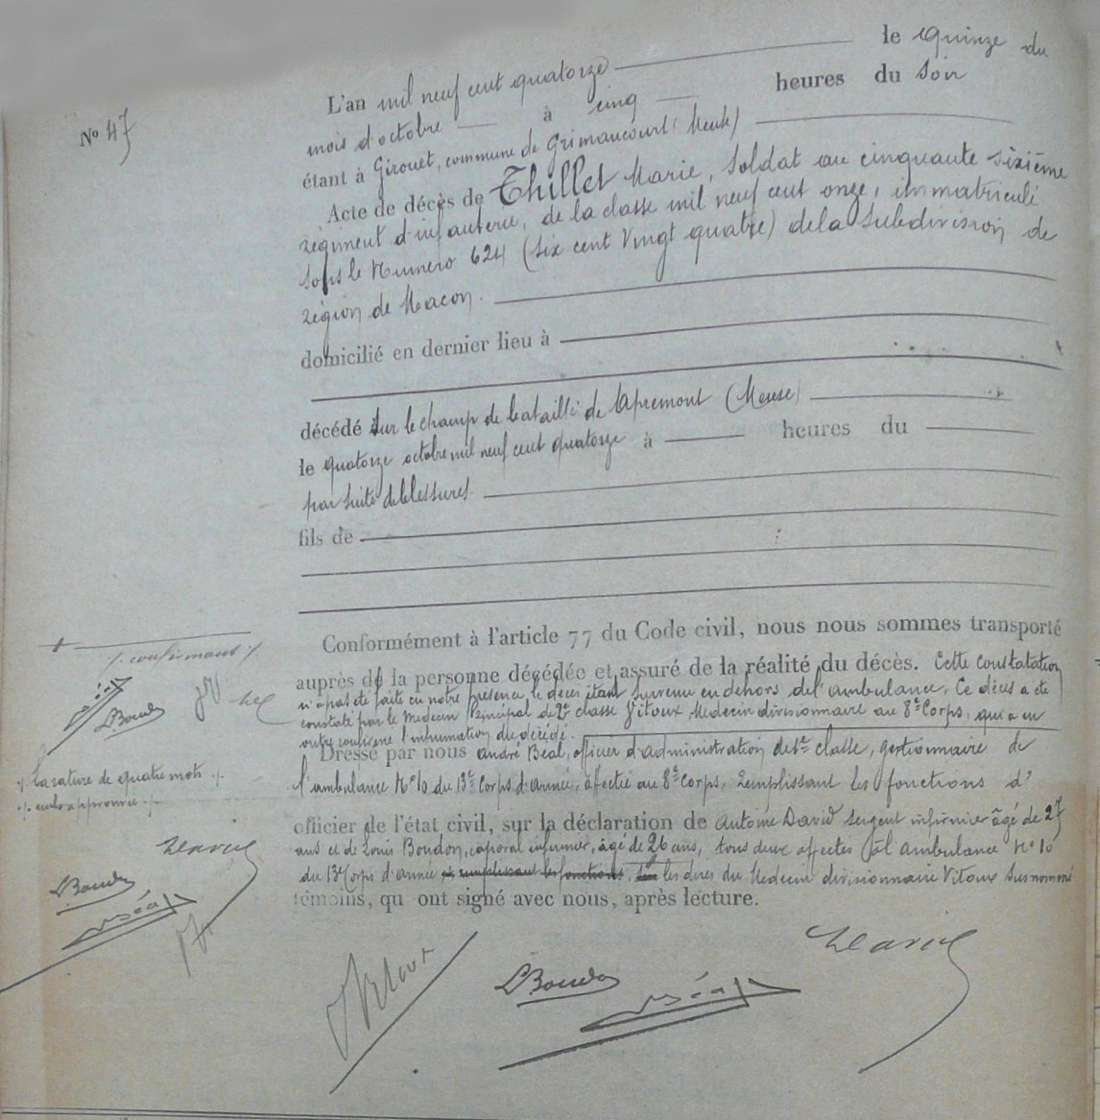 L'an mil neuf cent quatorze le quinze du
mois d'octobre à cinq heures du Soir
étant à Girouet, commune de Grimaucourt (Meuse)
N° 47
Acte de décès de Thillet Marie, Soldat au cinquante sixième
régiment d'infanterie, de la classe mil neuf cent onze, immatriculé
sous le Numéro 624 (six cent vingt quatre) de la Subdivision de
région de Macon.
domicilié en dernier lieu à
décédé sur le champ de bataille de Apremont (Meuse)
le quatorze octobre mil neuf cent quatorze à heures du
par suite de blessures
fils de
Conformément à l'article 77 du Code civil, nous nous sommes transporté
auprès de la personne décédée et assuré de la réalité du décès. Cette constatation
n'a pas été faite en notre présence, le décès étant survenu en dehors de l'ambulance. Ce décès a été
constaté par le Médecin Principal de 2e classe Vitoux Médecin divisionnaire au 8e Corps, qui a en
outre confirmé l'inhumation du décédé.
Dressé par nous André Béal, officier d'administration de 1re classe, gestionnaire de
l'ambulance N° 10 du 13e Corps d'Armée, affectée au 8e Corps, remplissant les fonctions d'
officier de l'état civil, sur la déclaration de Antoine David Sergent infirmier âgé de 27
ans et de Louis Boudon, caporal infirmier, âgé de 26 ans, tous deux affectés à l'ambulance N° 10
du 13e Corps d'armée et remplissant les fonctions les dires du Médecin divisionnaire Vitoux susnommé
témoins, qu ont signé avec nous, après lecture.
confirmant
LBoudon
Béal
La rature de quatre mots
approuvée
David
LBoudon
Béal
Vitoux
LBoudon
Béal
David